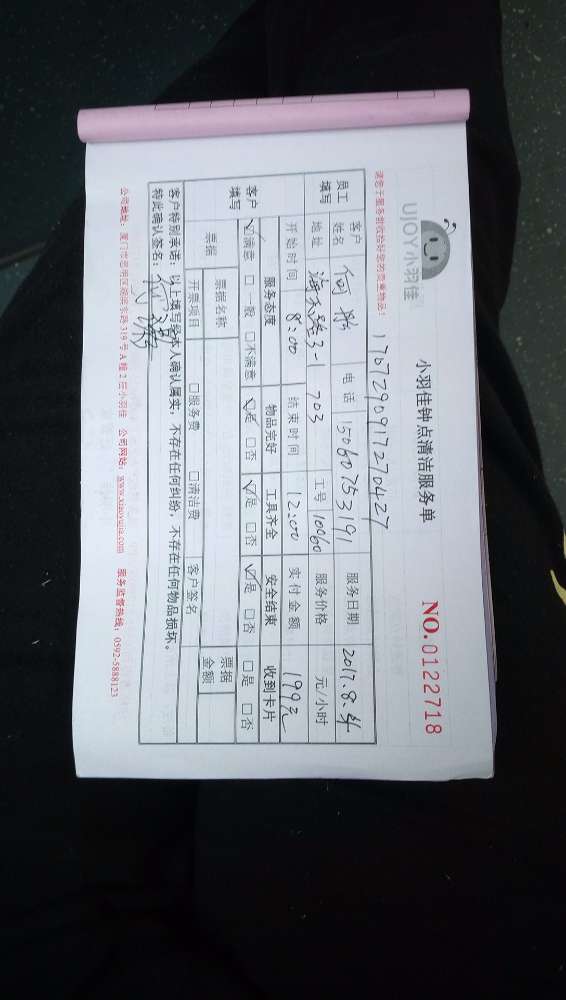 UJOY小羽佳
小羽佳钟点清洁服务单
NO.0122718
请您于服务前收拾好您的贵重物品!
17072909172270427
员工填写
客户姓名 何 电话 15060753191 服务日期 2017.8.4
地址 海天路3-1 703 工号 10060 服务价格 元/小时
开始时间 8:00 结束时间 12:00 实付金额 199元
客户填写
服务态度 物品完好 工具齐全 安全结束 收到卡片
☑满意 □一般 □不满意 ☑是 □否 ☑是 □否 ☑是 □否 □是 □否
票据 票据名称 票据金额
开票项目 □服务费 □清洁费 客户签名
客户特别承诺:以上填写经本人确认属实,不存在任何纠纷,不存在任何物品损坏。
特此确认签名:何
公司地址:厦门市思明区 319号A幢2层小羽佳 公司网站:www.xiaoyujia.com 服务监督热线:0592-5888123